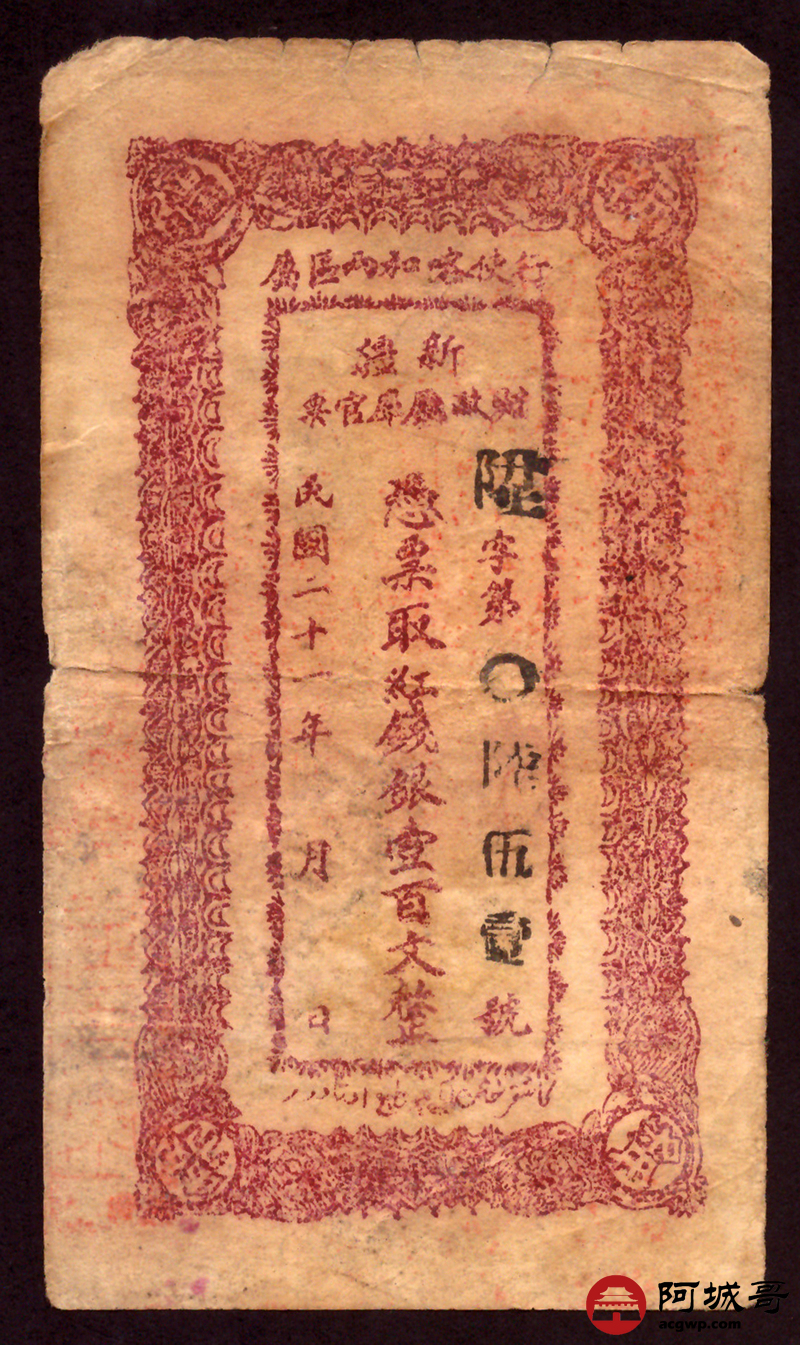 行使喀和两區属
新疆
財政廳庫官票
陞字第〇陸伍壹號
憑票取紅錢銀壹百文整
民國二十一年 月 日
阿城哥
acgwp.com